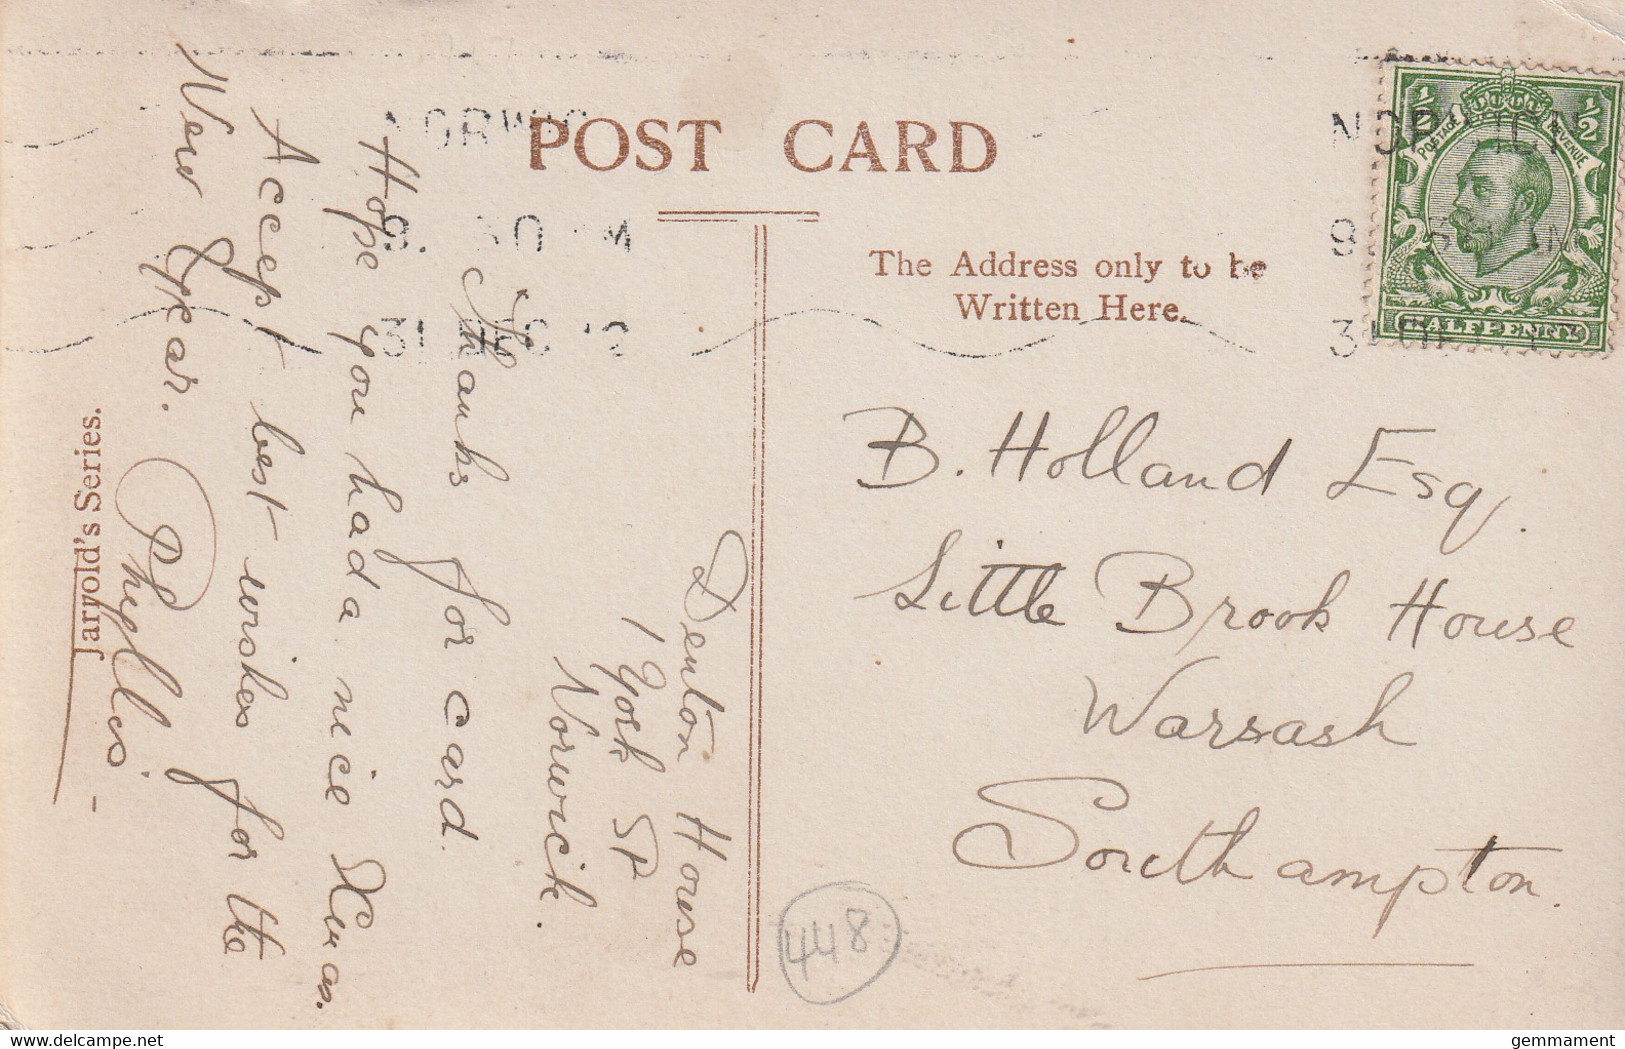 POST CARD
The Address only to be
Written Here.
NORWIC
9. 30 AM
31 DEC 12
NORWICH
9. 30 AM
31 DEC 12
½ ½
POSTAGE REVENUE
HALFPENNY
B. Holland Esq.
Little Brook House
Warsash
Southampton.
Denton House
1 York St
Norwich.
Thanks for card.
Hope you had a nice Xmas.
Accept best wishes for the
New Year.
Phyllis.
Jarrold's Series.
448
gemmament